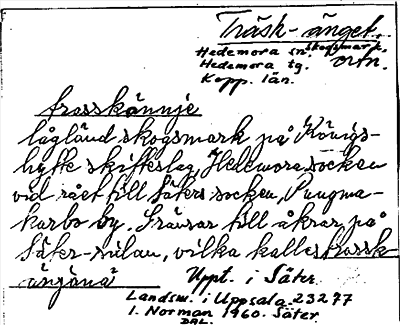 Träsk-änget.
Hedemora sn. skogsmark,
Hedemora tg. ortn.
Kopp. län.
frasskännje
lågländ skogsmark på Königs-
hytte skifteslag, Hedemora socken
vid rået till Säters socken, Pungma-
karbo by. Gränsar till åkrar på
Säter-sidan, vilka kalles trassk
ängänä
Uppt. i Säter.
Landsm. i Uppsala 23277
I. Norman 1960. Säter.
DAL.